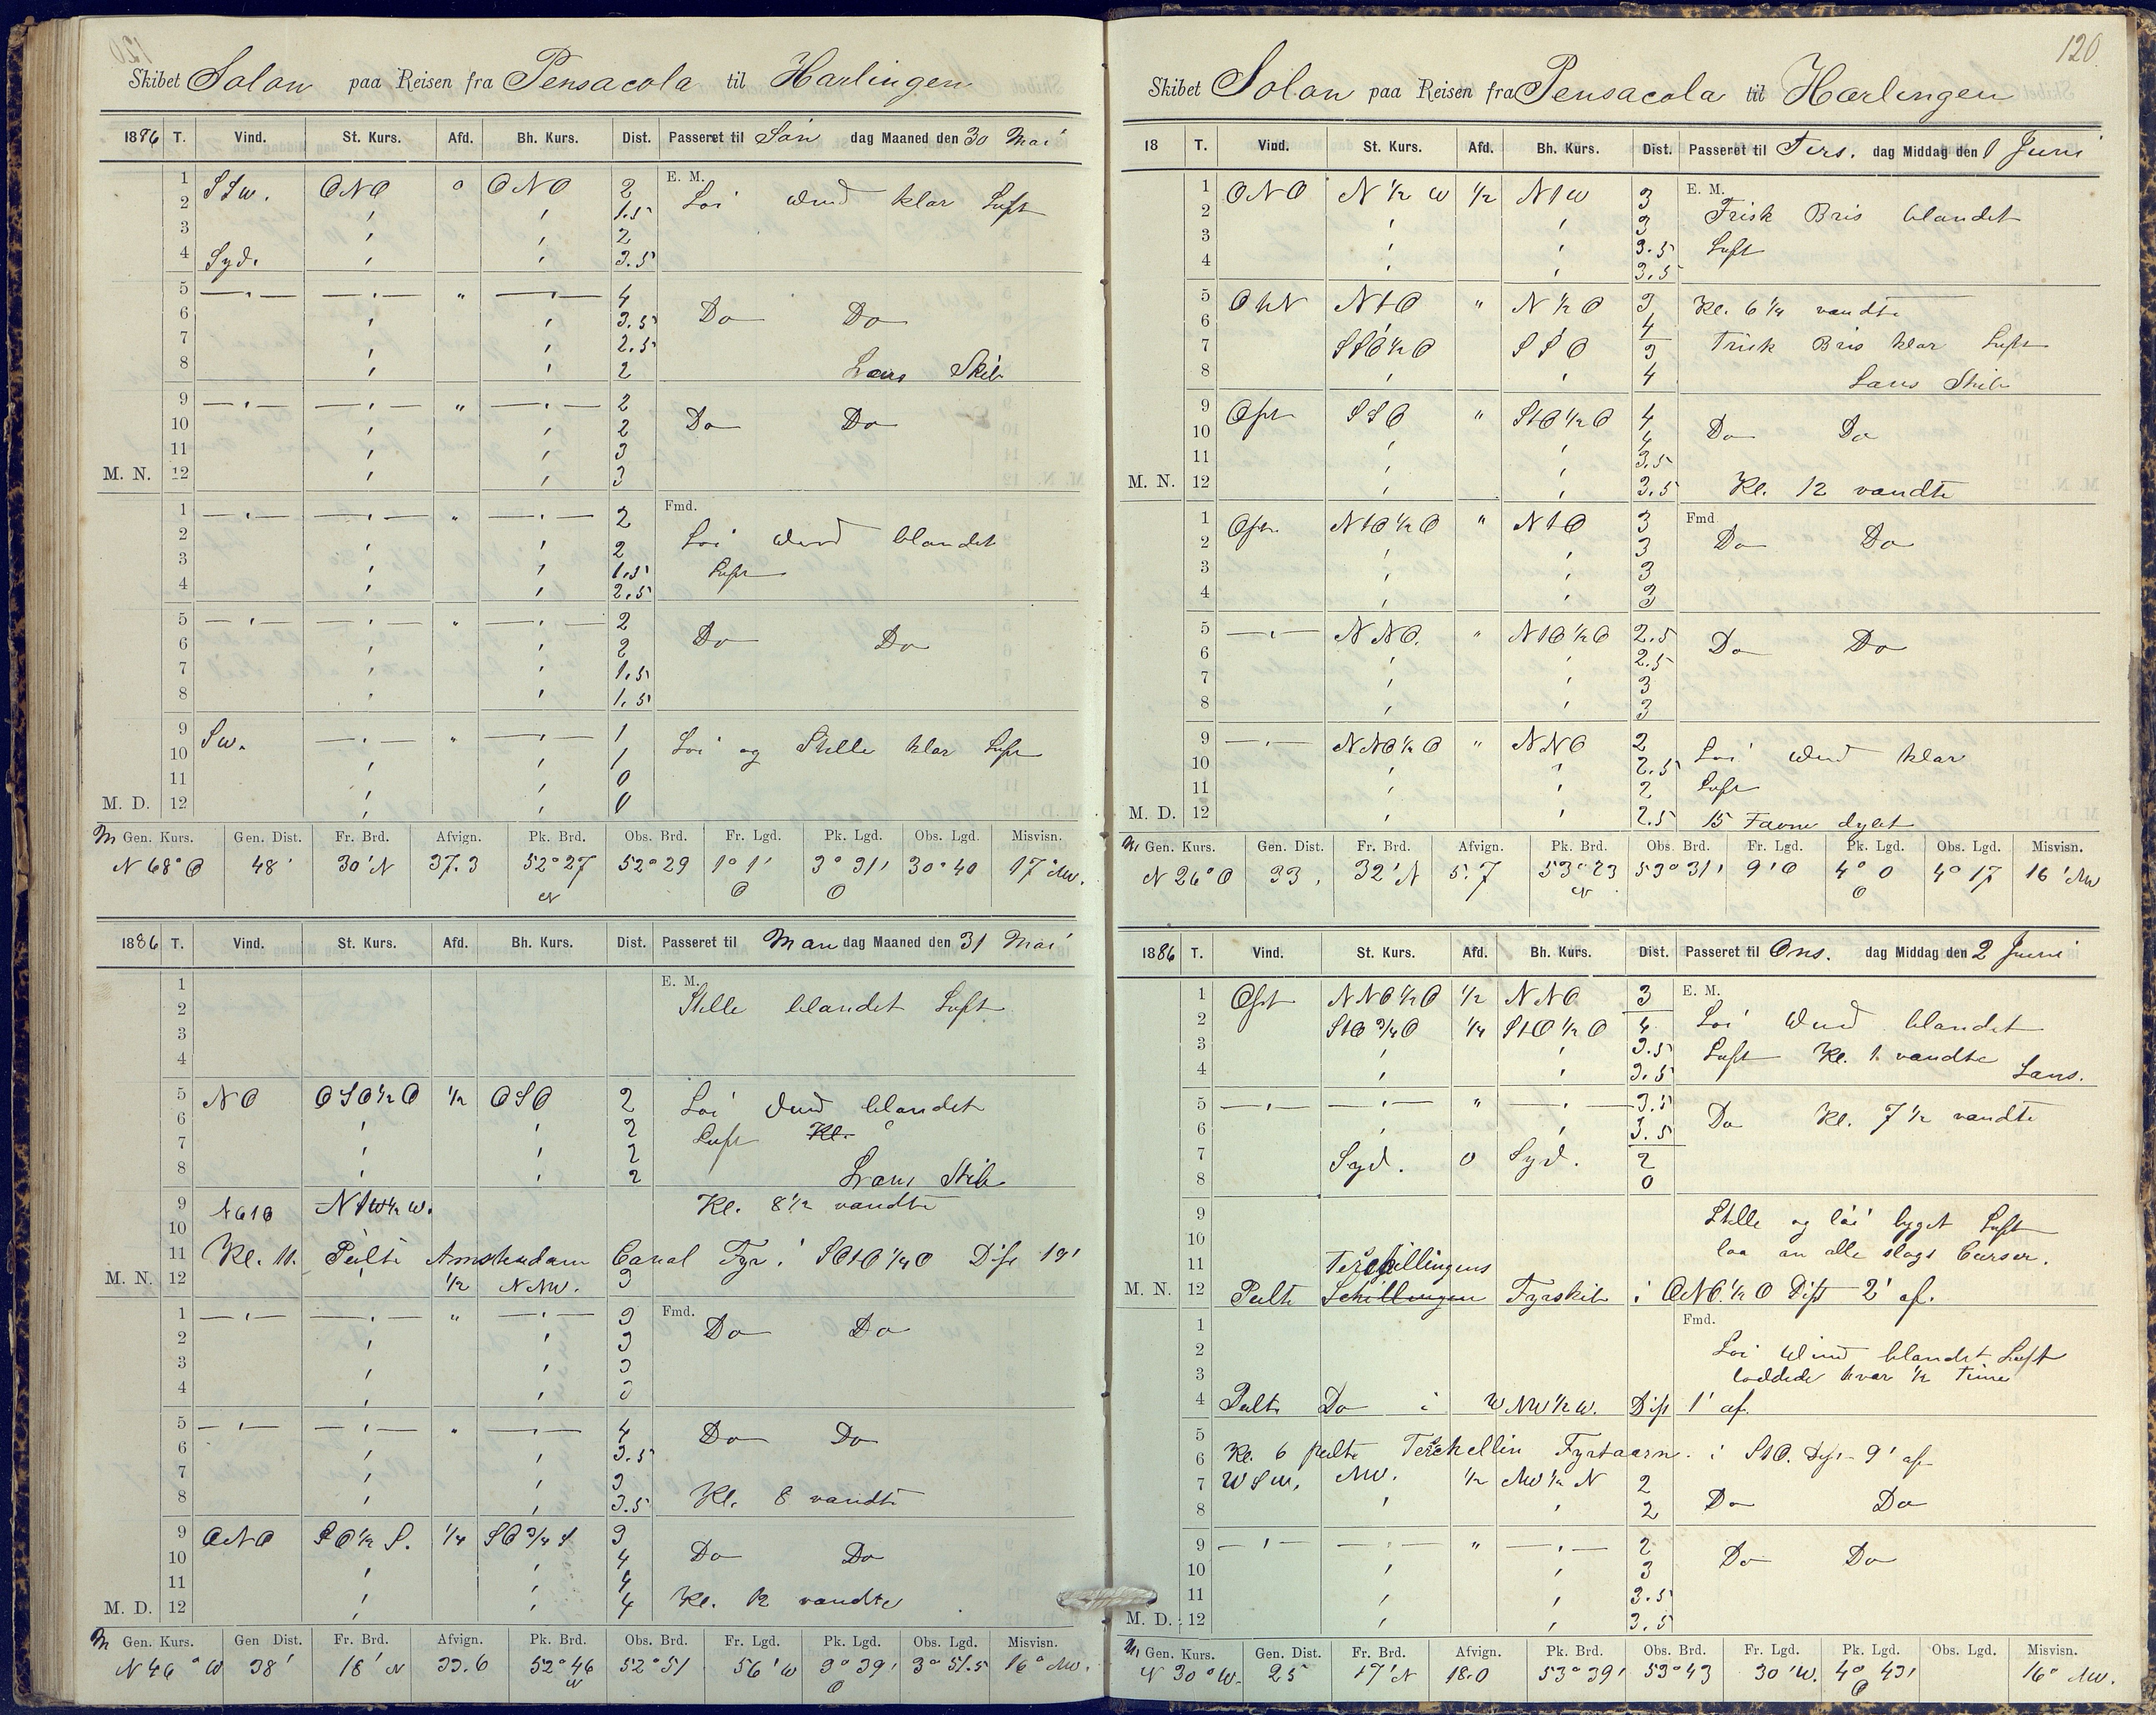 Skibet Solon paa Reisen fra Pensacola til Harlingen
1886 T. Vind. St. Kurs. Afd. Bh. Kurs. Dist. Passeret til Søn dag Maaned den 30 Mai
E. M.
1 SSw. ONO 0 ONO 2 Løi Wind klar Luft
2 1.5
3 2
4 Syd. 3.5
5 4
6 3.5 Do Do
7 2.5
8 2 Læns Skib
9 2
10 2 Do Do
11 3
M. N. 12 3
Fmd.
1 2
2 2 Løi Wind blandet
3 1.5 Luft
4 2.5
5 2
6 2 Do Do
7 1.5
8 1.5
9 Sw. 1
10 1 Løi og Stille klar Luft
11 0
M. D. 12 0
M Gen. Kurs. Gen. Dist. Fr. Brd. Afvign. Pk. Brd. Obs. Brd. Fr. Lgd. Pk. Lgd. Obs. Lgd. Misvisn.
N 68° O 48' 30' N 37.3 52° 27 N 52° 29 1° 1' O 3° 31' O 30° 40 17° NW.
1886 T. Vind. St. Kurs. Afd. Bh. Kurs. Dist. Passeret til Man dag Maaned den 31 Mai
E. M.
1
2 Stille blandet Luft
3
4
5 NO OSO½O ½ OSO 2 Løi Wind blandet
6 2 Luft Kl.
7 2
8 2 Læns Skib
9 NOtO NtW½W. Kl. 8½ vandte
10
11 Kl. 11. Peilte Amsterdam Canal Fyr i SOtO¼O Dist 19'
M. N. 12 ½ NNW. 3
Fmd.
1 3 Do Do
2 3
3 3
4 3
5 4 Do Do
6 3.5
7 3
8 3.5 Kl. 8 vandte
9 ONO SO½S. ¼ SO¾S 3
10 4 Do Do
11 4
M. D. 12 4 Kl. 12 vandte
M Gen. Kurs. Gen Dist. Fr. Brd. Afvign. Pk. Brd. Obs. Brd. Fr. Lgd. Pk. Lgd. Obs. Lgd. Misvisn.
N 46° W 38' 18' N 33.6 52° 46 N 52° 51 56' W 3° 39' O 3° 51.5 16° NW.
120
Skibet Solon paa Reisen fra Pensacola til Harlingen
18 T. Vind. St. Kurs. Afd. Bh. Kurs. Dist. Passeret til Tirs. dag Middag den 1 Juni
E. M.
1 ONO N½W ½ NtW 3
2 3 Frisk Bris blandet
3 3.5 Luft
4 3.5
5 OtN NtO " N½O 3 Kl. 6¼ vandte
6 4
7 SSO½O SSO 3 Frisk Bris klar Luft
8 4 Læns Skib
9 Ost SSO " StO½O 4
10 4 Do Do
11 3.5
M. N. 12 3.5 Kl. 12 vandte
Fmd
1 Ost. NtO½O " NtO 3
2 3 Do Do
3 3
4 3
5 NNO. " NtO½O 2.5
6 2.5 Do Do
7 3
8 3
9 NNO½O " NNO 2
10 2.5 Løi Wind klar
11 2 Luft
M. D. 12 2.5 15 Favne dybt
M Gen. Kurs. Gen. Dist. Fr. Brd. Afvign. Pk. Brd. Obs. Brd. Fr. Lgd. Pk. Lgd. Obs. Lgd. Misvisn.
N 26° O 33' 32' N 5.7 53° 23 N 53° 31' 9' O 4° 0 O 4° 17 16' NW
1886 T. Vind. St. Kurs. Afd. Bh. Kurs. Dist. Passeret til Ons. dag Middag den 2 Juni
E. M.
1 Ost NNO½O ½ NNO 3
2 StO¾O ¼ StO½O 4 Løi Wind blandet
3 3.5 Luft Kl. 1. vandte
4 3.5 Læns.
5 " 3.5
6 3.5 Do Kl. 7½ vandte
7 Syd. 0 Syd. 2
8 0
9 Stille og løi byget Luft
10 laa an alle slags Curser.
11 Terschillingens
M. N. 12 Peilte Schillingen Fyrskib i ONO½O Dist 2' af.
Fmd.
1
2 Løi Wind blandet Luft
3 loddede hver ½ Time
4 Peilte Do i WNW½W. Dist 1' af.
5
6 Kl. 6 peilte Terschellin Fyrtaarn. i StO. Dist 9' af
7 WSW. NW. ½ NW½N 2
8 2 Do Do
9 " 2
10 3 Do Do
11 3.5
M. D. 12 3.5
M Gen. Kurs. Gen. Dist. Fr. Brd. Afvign. Pk. Brd. Obs. Brd. Fr. Lgd. Pk. Lgd. Obs. Lgd. Misvisn.
N 30° W. 25 17' N 18.0 53° 39' 53° 43 30' W. 4° 43' O 16° NW.